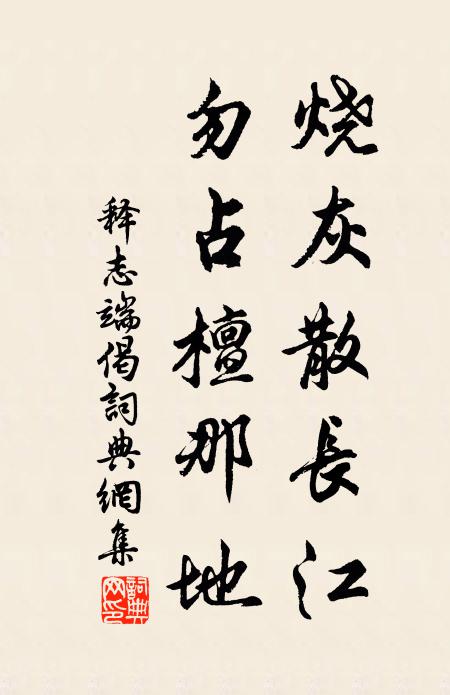 烧灰散長江
勿占檀那地
释志端偈詞典網集
詞典網印